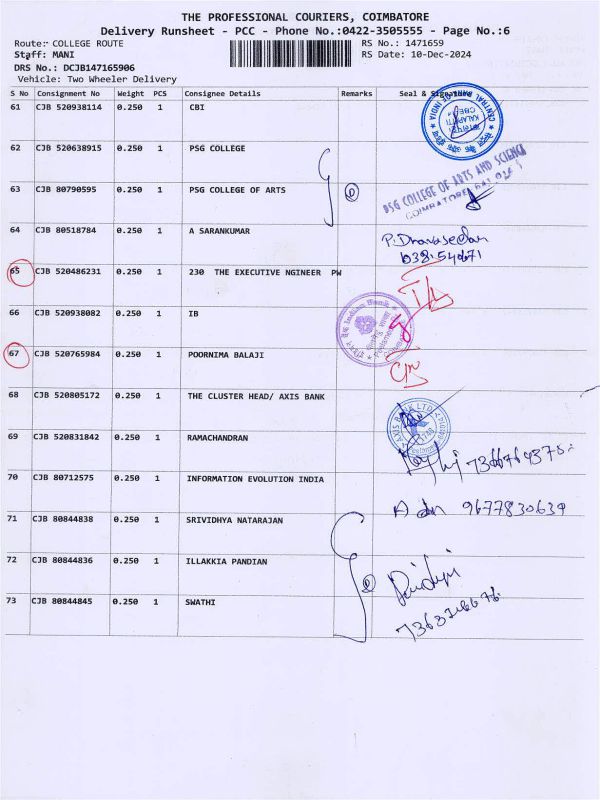 THE PROFESSIONAL COURIERS, COIMBATORE
Delivery Runsheet - PCC - Phone No.:0422-3505555 - Page No.:6
Route: COLLEGE ROUTE RS No.: 1471659
Staff: MANI RS Date: 10-Dec-2024
DRS No.: DCJB147165906
Vehicle: Two Wheeler Delivery
S No Consignment No Weight PCS Consignee Details Remarks Seal & Signature
61 CJB 520938114 0.250 1 CBI
CENTRAL BANK OF INDIA
62 CJB 520638915 0.250 1 PSG COLLEGE
PSG COLLEGE OF ARTS AND SCIENCE
COIMBATORE
63 CJB 80790595 0.250 1 PSG COLLEGE OF ARTS
64 CJB 80518784 0.250 1 A SARANKUMAR
65 CJB 520486231 0.250 1 230 THE EXECUTIVE NGINEER PW
66 CJB 520938082 0.250 1 IB
Indian Bank
67 CJB 520765984 0.250 1 POORNIMA BALAJI
68 CJB 520805172 0.250 1 THE CLUSTER HEAD/ AXIS BANK
AXIS BANK LTD
69 CJB 520831842 0.250 1 RAMACHANDRAN
70 CJB 80712575 0.250 1 INFORMATION EVOLUTION INDIA
9677830639
71 CJB 80844838 0.250 1 SRIVIDHYA NATARAJAN
72 CJB 80844836 0.250 1 ILLAKKIA PANDIAN
73 CJB 80844845 0.250 1 SWATHI